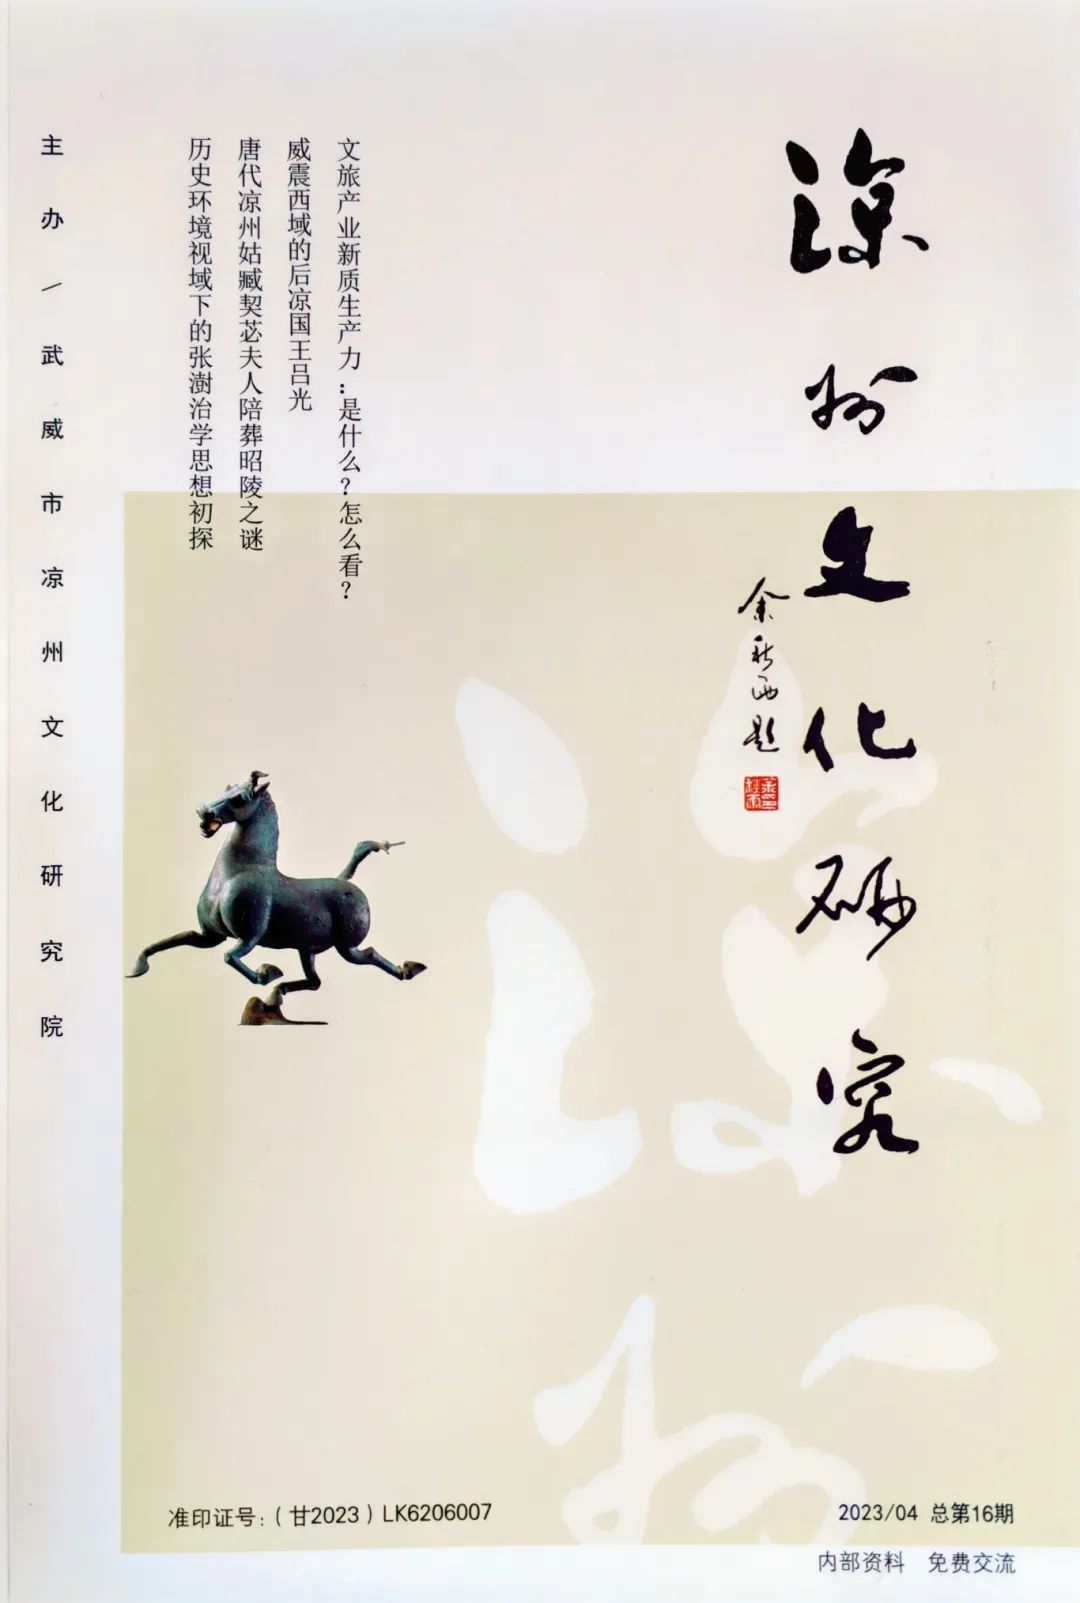 凉州文化研究
余秋雨题
文旅产业新质生产力：是什么？怎么看？
威震西域的后凉国王吕光
唐代凉州姑臧契苾夫人陪葬昭陵之谜
历史环境视域下的张澍治学思想初探
主办／武威市凉州文化研究院
准印证号：（甘2023）LK6206007
2023/04 总第16期
内部资料 免费交流